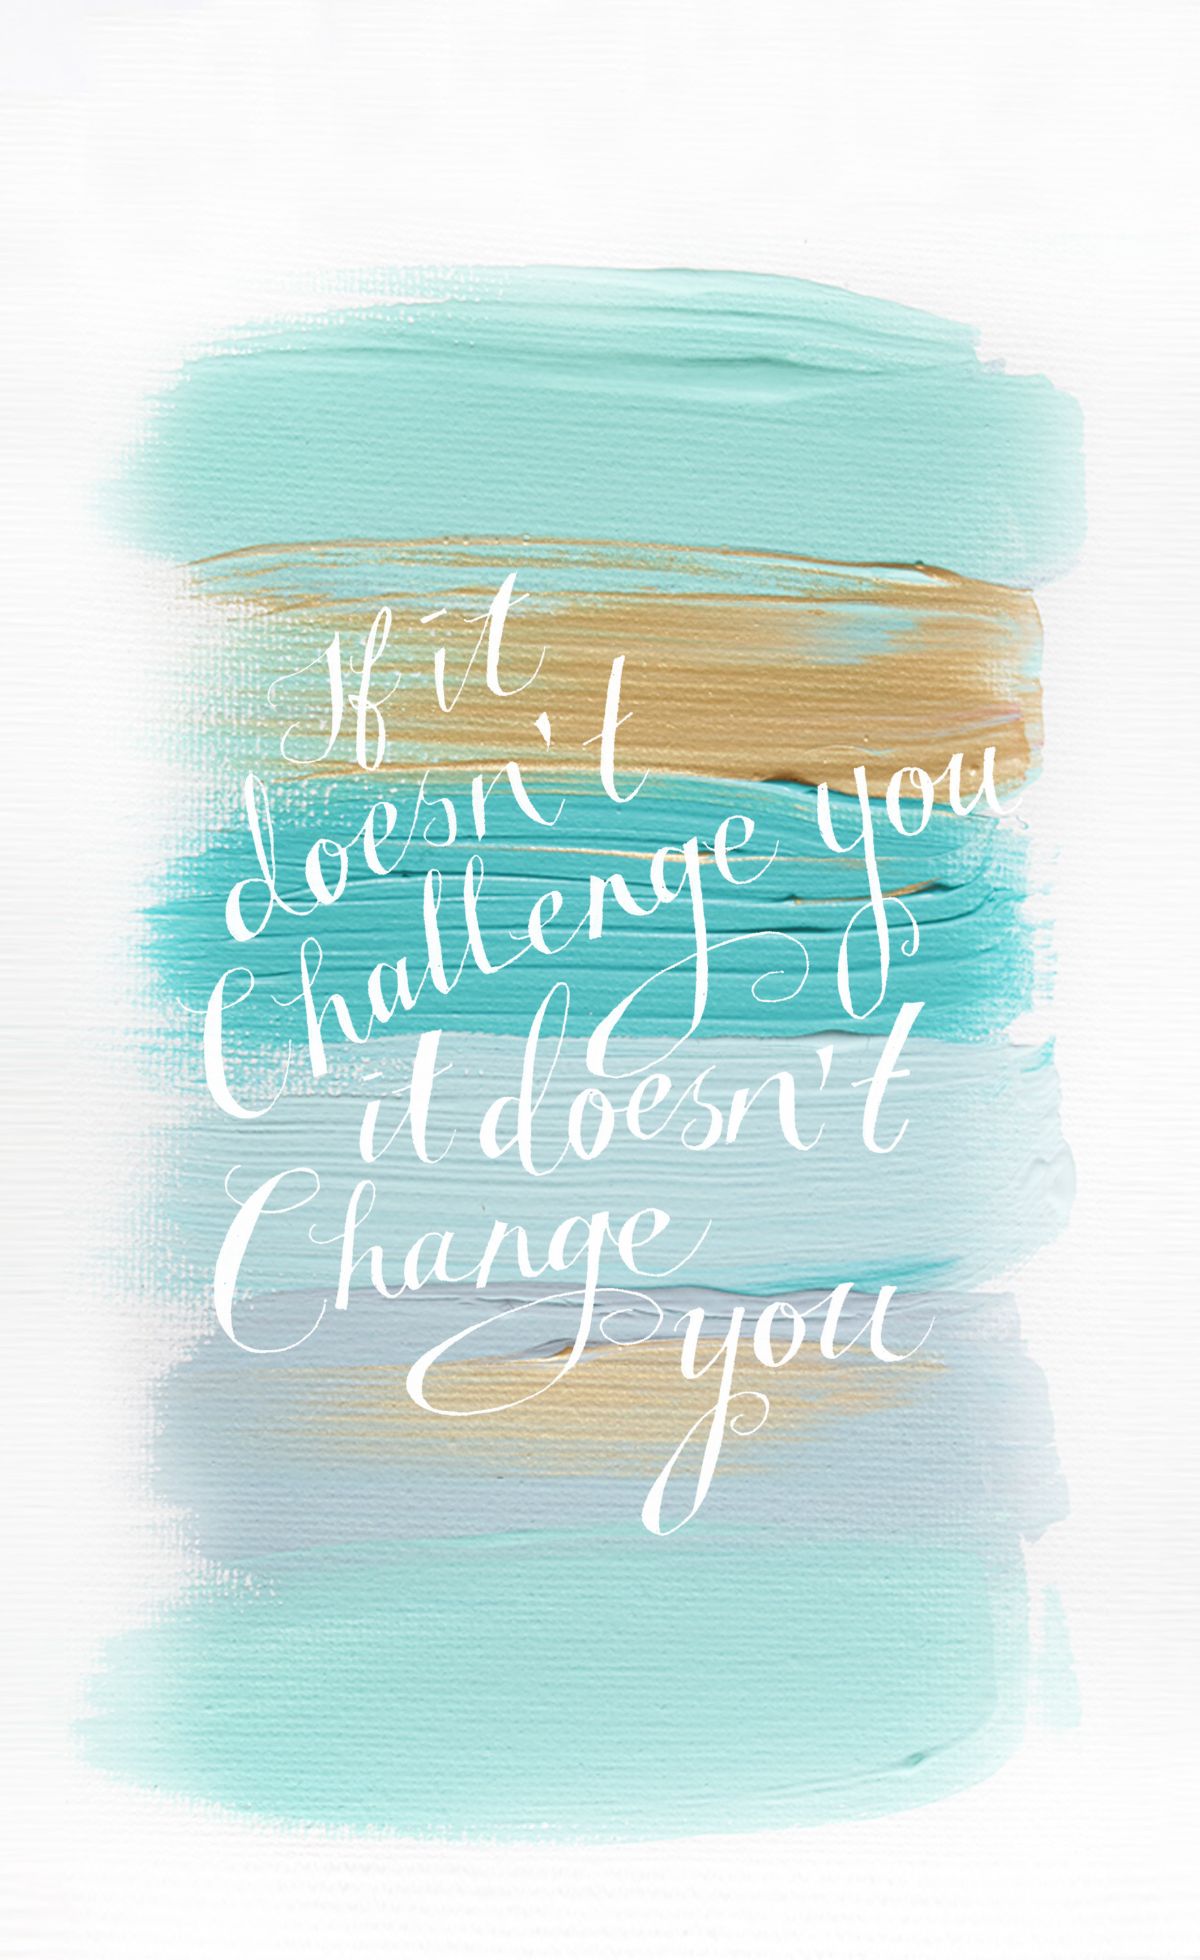 If it
doesn't
Challenge you
it doesn't
Change
you